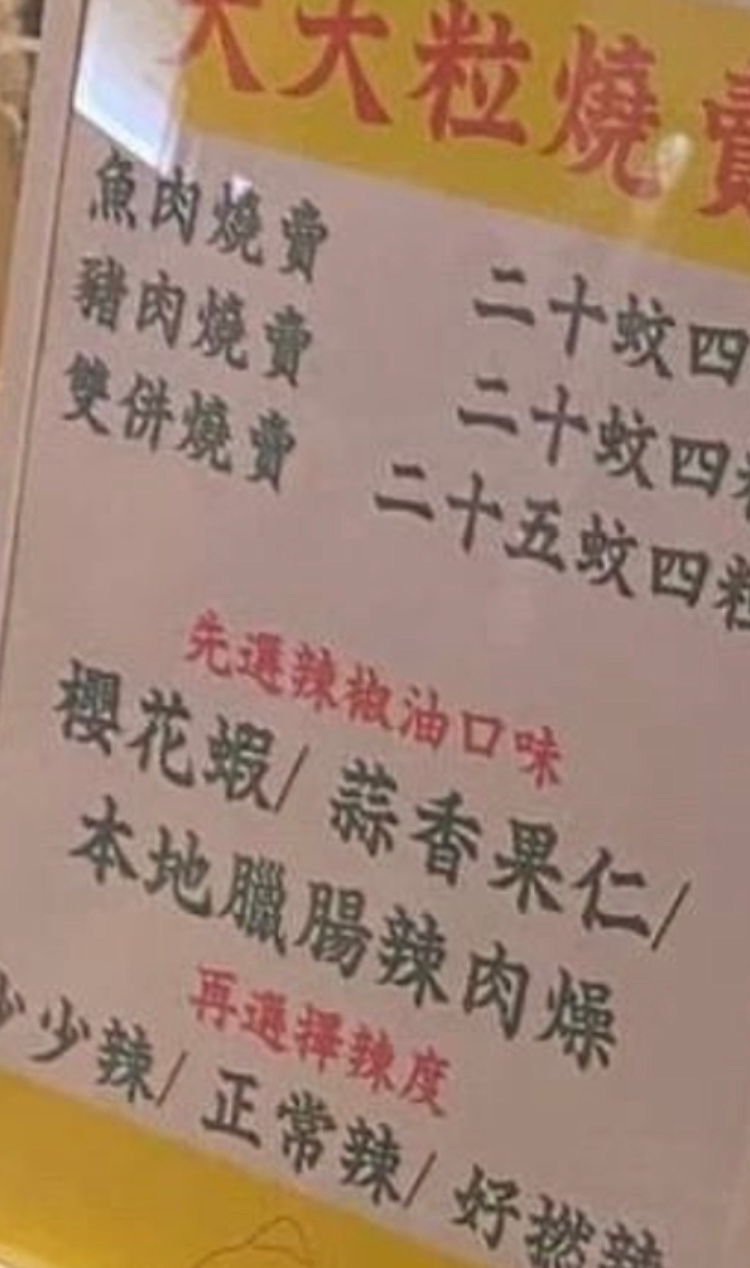 大大粒燒賣
魚肉燒賣 二十蚊四
豬肉燒賣 二十蚊四粒
雙併燒賣 二十五蚊四粒
先選辣椒油口味
櫻花蝦/ 蒜香果仁/
本地臘腸辣肉燥
再選擇辣度
少少辣/ 正常辣/ 好撚辣